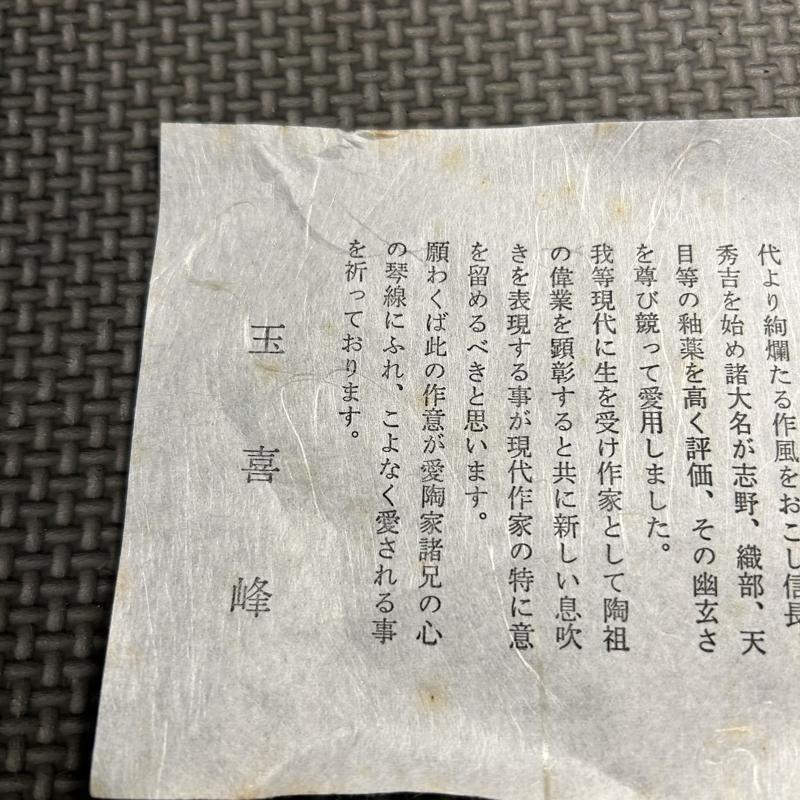 代より絢爛たる作風をおこし信長
秀吉を始め諸大名が志野、織部、天
目等の釉薬を高く評価、その幽玄さ
を尊び競って愛用しました。
我等現代に生を受け作家として陶祖
の偉業を顕彰すると共に新しい息吹
きを表現する事が現代作家の特に意
を留めるべきと思います。
願わくば此の作意が愛陶家諸兄の心
の琴線にふれ、こよなく愛される事
を祈っております。
玉喜峰